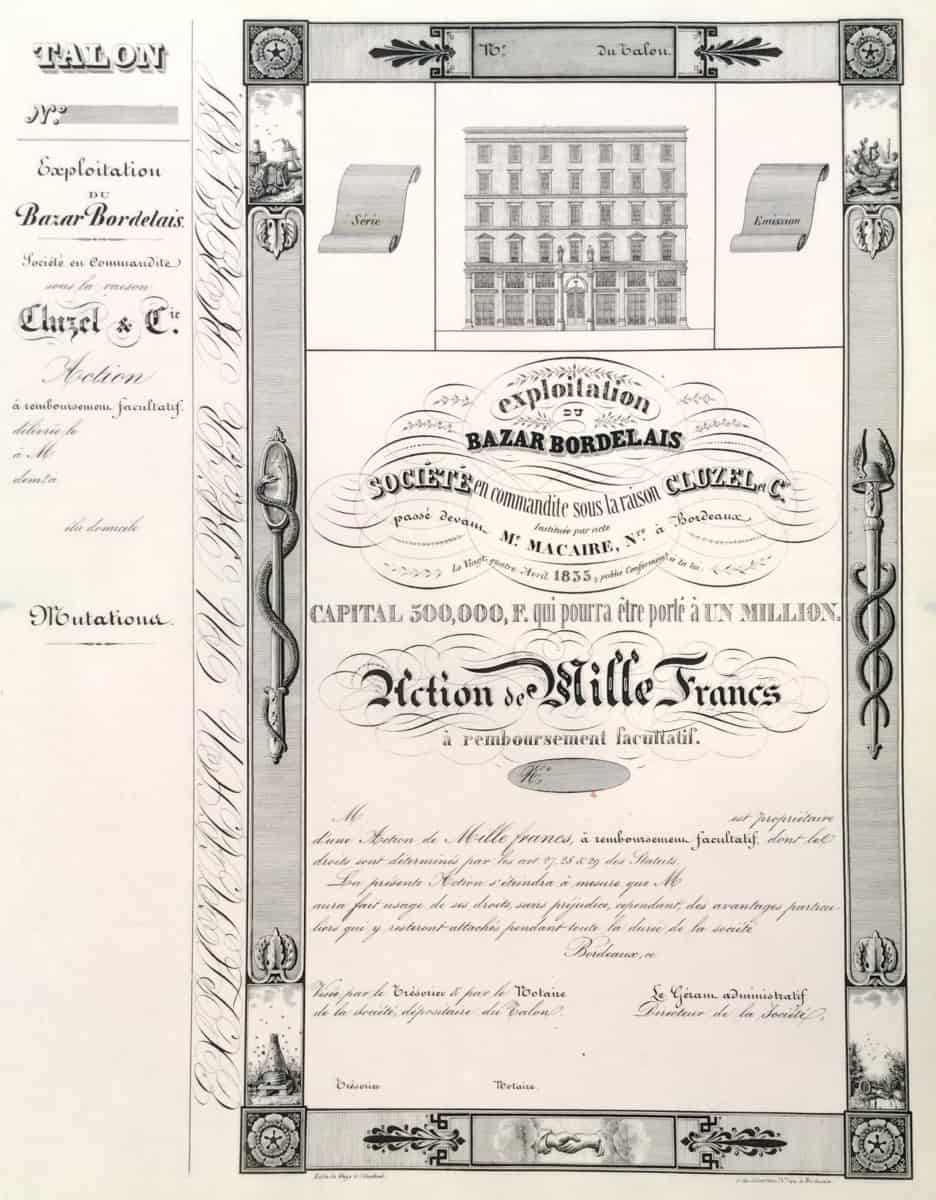 TALON
N.º
Exploitation
DU
Bazar Bordelais.
Société en Commandite
sous la raison
Cluzel & C.ie
Action
à remboursement facultatif.
délivrée le
à M
dem.t à
élu domicile
Mutations.
EXPLOITATION DU BAZAR BORDELAIS.
N.º du Talon.
Série
Emission
exploitation
DU
BAZAR BORDELAIS
SOCIÉTÉ en commandite sous la raison CLUZEL et C.ie
Instituée par acte
passé devant M.e MACAIRE, N.re à Bordeaux
Le Vingt-quatre Avril 1835, publié Conformément à la loi.
CAPITAL 500,000, F. qui pourra être porté à UN MILLION.
Action de Mille Francs
à remboursement facultatif.
N.º
M est propriétaire
d'une Action de Mille francs, à remboursement facultatif, dont les
droits sont déterminés par les art. 27, 28 & 29 des Statuts.
La présente Action s'éteindra à mesure que M
aura fait usage de ses droits, sans préjudice, cependant, des avantages particu-
liers qui y resteront attachés pendant toute la durée de la société
Bordeaux, ce
Visée par le Trésorier & par le Notaire
de la société, dépositaire du Talon.
Le Gérant administratif
Directeur de la Société,
Trésorier
Notaire.